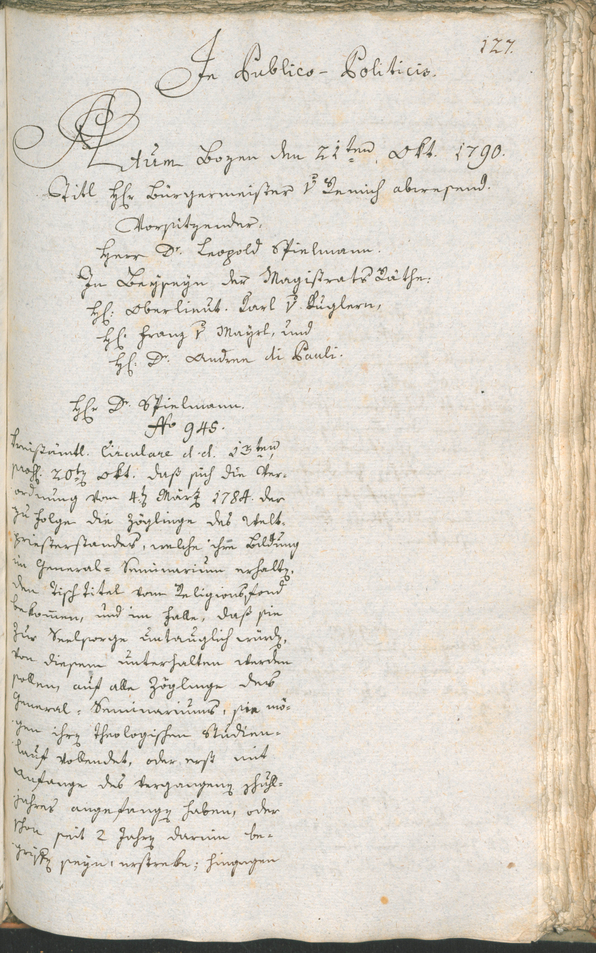 127.
In Publico-Politicis.
Actum Bozen den 21ten Okt. 1790.
Titl. Hr. Bürgermeister v. Remich abwesend.
Vorsitzender.
Herr Dr. Leopold Spielmann.
In Beyseyn der Magistrats Räthe:
Hr. Oberlieut. Karl v. Kuglern,
Hr. Franz v. Mayrl, und
Hr. Dr. Andreæ di Pauli.
Hr. Dr. Spielmann.
No 945.
Kreisämtl. Circulare d. d. 13ten,
præs. 20ten Okt. daß sich die Ver-
ordnung vom 4ten März 1784. der
zu Folge die Zöglinge des Welt-
priesterstandes, welche ihre Bildung
im General-Seminarium erhalten,
den Tischtitel vom Religionsfond
bekommen, und im Falle, daß sie
zur Seelsorge untauglich würden,
von diesem unterhalten werden
sollen, auf alle Zöglinge des
General-Seminariums, sie mö-
gen ihren theologischen Studien-
lauf vollendet, oder erst mit
Anfange des vergangenen Schul-
jahres angefangen haben, oder
schon seit 2 Jahren darum be-
griffen seyn, erstrecke; hingegen